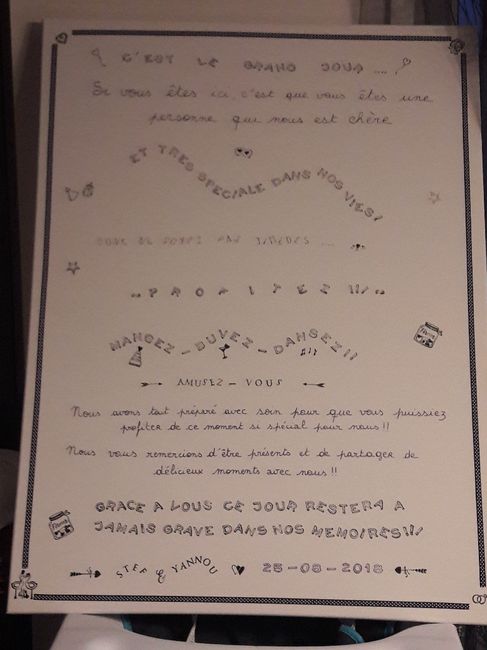 C'EST LE GRAND JOUR ....
Si vous êtes ici, c'est que vous êtes une
personne qui nous est chère
ET TRES SPECIALE DANS NOS VIES!
DONC NE SOYEZ PAS TIMIDES ...
..PROFITEZ !!!..
MANGEZ - BUVEZ - DANSEZ!!
AMUSEZ - VOUS
Nous avons tout préparé avec soin pour que vous puissiez
profiter de ce moment si spécial pour nous!!
Nous vous remercions d'être présents et de partager de
délicieux moments avec nous!!
GRACE A VOUS CE JOUR RESTERA A
JAMAIS GRAVE DANS NOS MEMOIRES!!!
STEF & YANNOU 25-08-2018